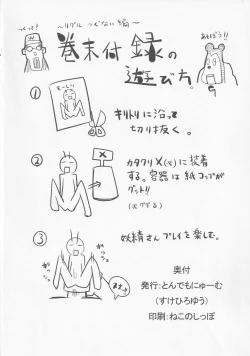 ～リグル つぐない編～
つくって!
あそぼう!!
巻末付録の
遊び方。
①
キリトリに沿って
切り抜く。
②
カタクリ×(※)に装着
する。容器は紙コップが
グッド!!
③
妖精さんプレイを楽しむ。
奥付
発行:とんでもにゅーむ
(すけひろゆう)
印刷:ねこのしっぽ